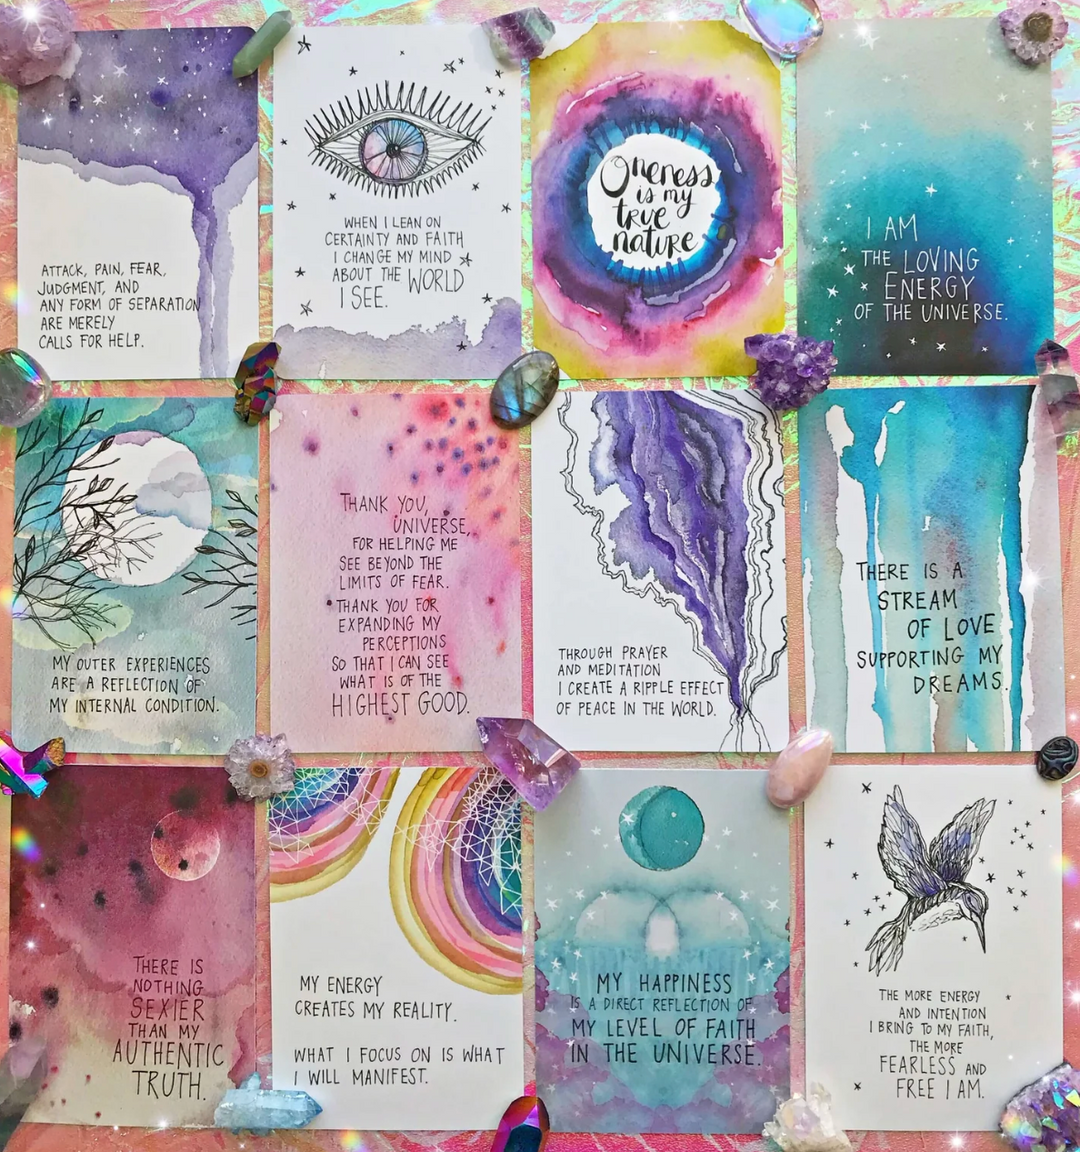 ATTACK, PAIN, FEAR,
JUDGMENT, AND
ANY FORM OF SEPARATION
ARE MERELY
CALLS FOR HELP.
WHEN I LEAN ON
CERTAINTY AND FAITH
I CHANGE MY MIND
ABOUT THE WORLD
I SEE.
Oneness
is my
true
nature
I AM
THE LOVING
ENERGY
OF THE UNIVERSE.
MY OUTER EXPERIENCES
ARE A REFLECTION OF
MY INTERNAL CONDITION.
THANK YOU,
UNIVERSE,
FOR HELPING ME
SEE BEYOND THE
LIMITS OF FEAR.
THANK YOU FOR
EXPANDING MY
PERCEPTIONS
SO THAT I CAN SEE
WHAT IS OF THE
HIGHEST GOOD.
THROUGH PRAYER
AND MEDITATION
I CREATE A RIPPLE EFFECT
OF PEACE IN THE WORLD.
THERE IS A
STREAM
OF LOVE
SUPPORTING MY
DREAMS.
THERE IS
NOTHING
SEXIER
THAN MY
AUTHENTIC
TRUTH.
MY ENERGY
CREATES MY REALITY.
WHAT I FOCUS ON IS WHAT
I WILL MANIFEST.
MY HAPPINESS
IS A DIRECT REFLECTION OF
MY LEVEL OF FAITH
IN THE UNIVERSE.
THE MORE ENERGY
AND INTENTION
I BRING TO MY FAITH,
THE MORE
FEARLESS AND
FREE I AM.